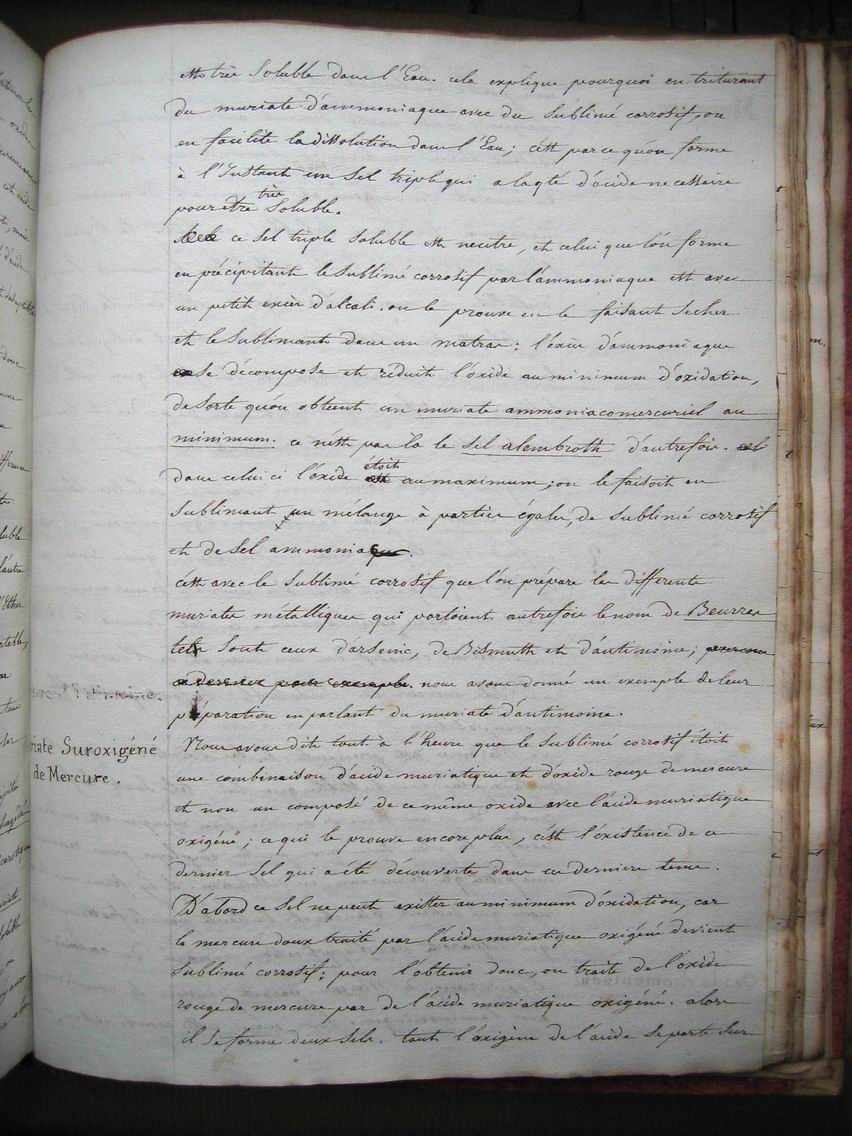 est très soluble dans l'Eau. cela explique pourquoi en triturant
du muriate d'ammoniaque avec du sublimé corrosif, on
en facilite la dissolution dans l'Eau; c'est parce qu'on forme
à l'Instant un sel triple qui a la qté d'acide necessaire
pour être très soluble.
ce sel triple soluble est neutre, et celui que l'on forme
en précipitant le sublimé corrosif par l'ammoniaque est avec
un petit excès d'alcali. on le prouve en le faisant secher
et le sublimant dans un matras: l'excès d'ammoniaque
se décompose et réduit l'oxide au minimum d'oxidation,
de sorte qu'on obtient un muriate ammoniacomercuriel au
minimum. ce n'est pas là le sel alembroth d'autrefois.
dans celui ci l'oxide étoit au maximum; on le faisoit en
sublimant un mélange à parties égales, de sublimé corrosif
et de sel ammoniac.
c'est avec le sublimé corrosif que l'on prépare les differents
muriates métalliques qui portoient autrefois le nom de Beurres
tels sont ceux d'arsenic, de Bismuth et d'antimoine;
ce dernier pour exemple. nous avons donné un exemple de leur
préparation en parlant du muriate d'antimoine.
riate Suroxigéné
de Mercure.
Nous avons dit tout à l'heure que le sublimé corrosif étoit
une combinaison d'acide muriatique et d'oxide rouge de mercure
et non un composé de ce même oxide avec l'acide muriatique
oxigéné; ce qui le prouve encore plus, c'est l'existence de ce
dernier sel qui a été découverte dans ces derniers tems.
D'abord ce sel ne peut exister au minimum d'oxidation, car
le mercure doux traité par l'acide muriatique oxigéné devient
sublimé corrosif; pour l'obtenir donc, on traite de l'oxide
rouge de mercure par de l'acide muriatique oxigéné. alors
il se forme deux sels. tout l'oxigène de l'acide se porte sur